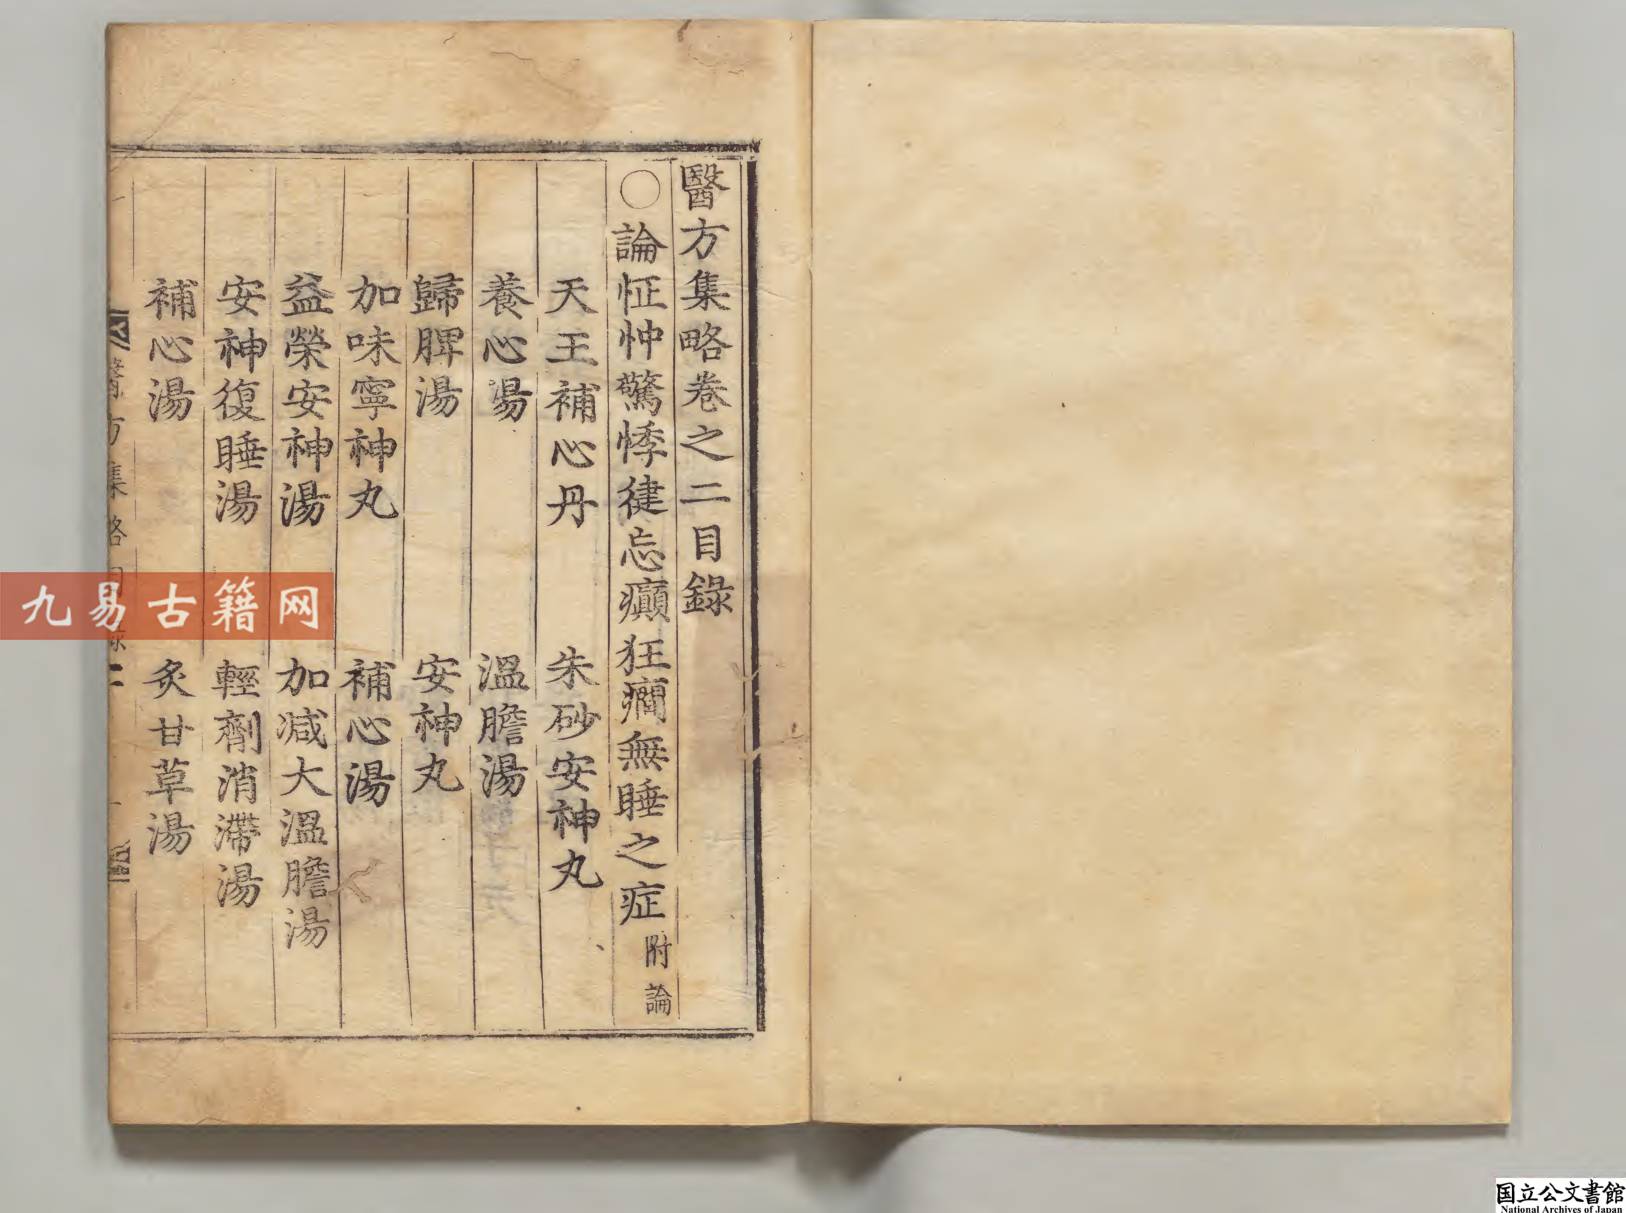 醫方集略卷之二目錄
○論怔忡驚悸徤忘癲狂癎無睡之症附論
天王補心丹　朱砂安神丸
養心湯　溫膽湯
歸脾湯　安神丸
加味寧神丸　補心湯
益榮安神湯　加减大溫膽湯
安神復睡湯　輕劑消滯湯
補心湯　炙甘草湯
醫方集略目錄
九易古籍网
国立公文書館
National Archives of Japan